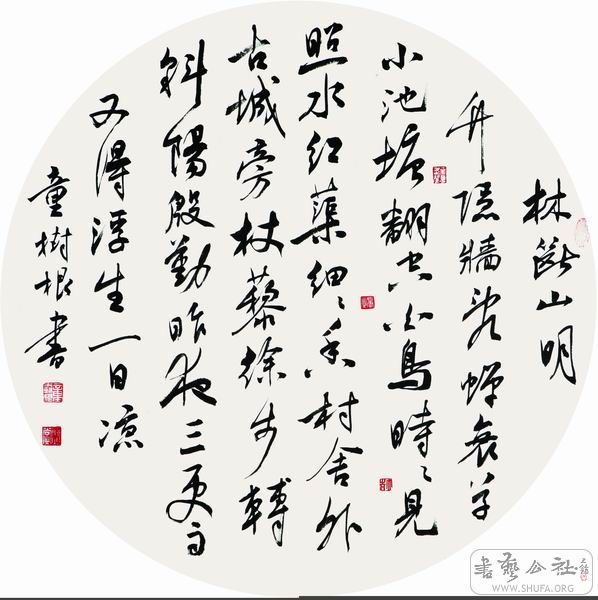 林斷山明
竹隱牆亂蟬衰草
小池塘翻空白鳥時〻見
照水紅蕖細〻香村舍外
古城旁杖藜徐步轉
斜陽殷勤昨夜三更雨
又得浮生一日涼
童樹根書
書藝公社
WWW.SHUFA.ORG